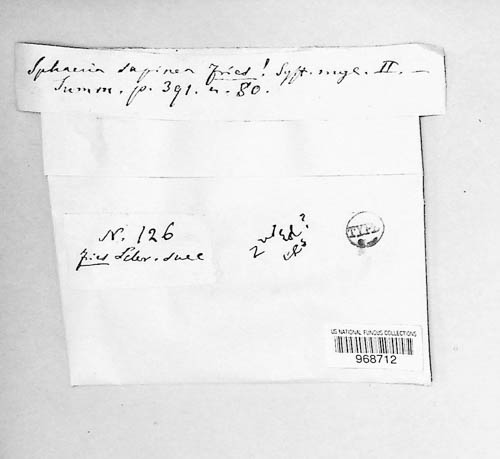 Sphaeria sapinea Fries! Syst. myc. II. —
Summ. p. 391. n. 80.
N. 126
Fries Scler. suec
TYPE
US NATIONAL FUNGUS COLLECTIONS
968712